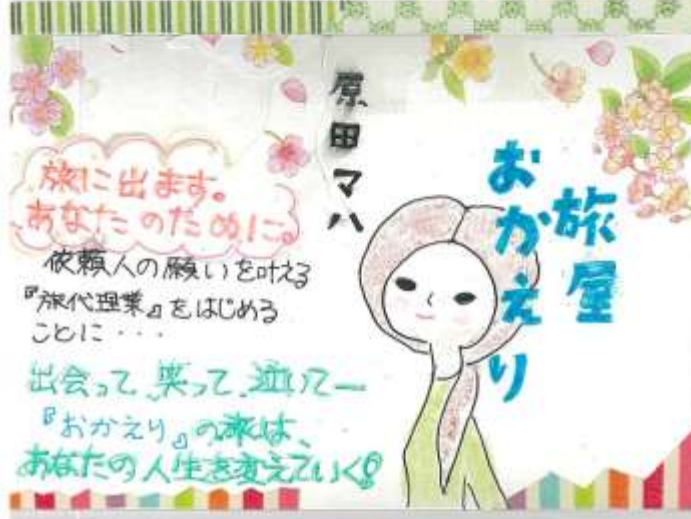 旅屋
おかえり
原田マハ
旅に出ます。
あなたのために。
依頼人の願いを叶える
『旅代理業』をはじめる
ことに・・・
出会って、笑って、泣いて―
『おかえり』の旅は、
あなたの人生を変えていく!